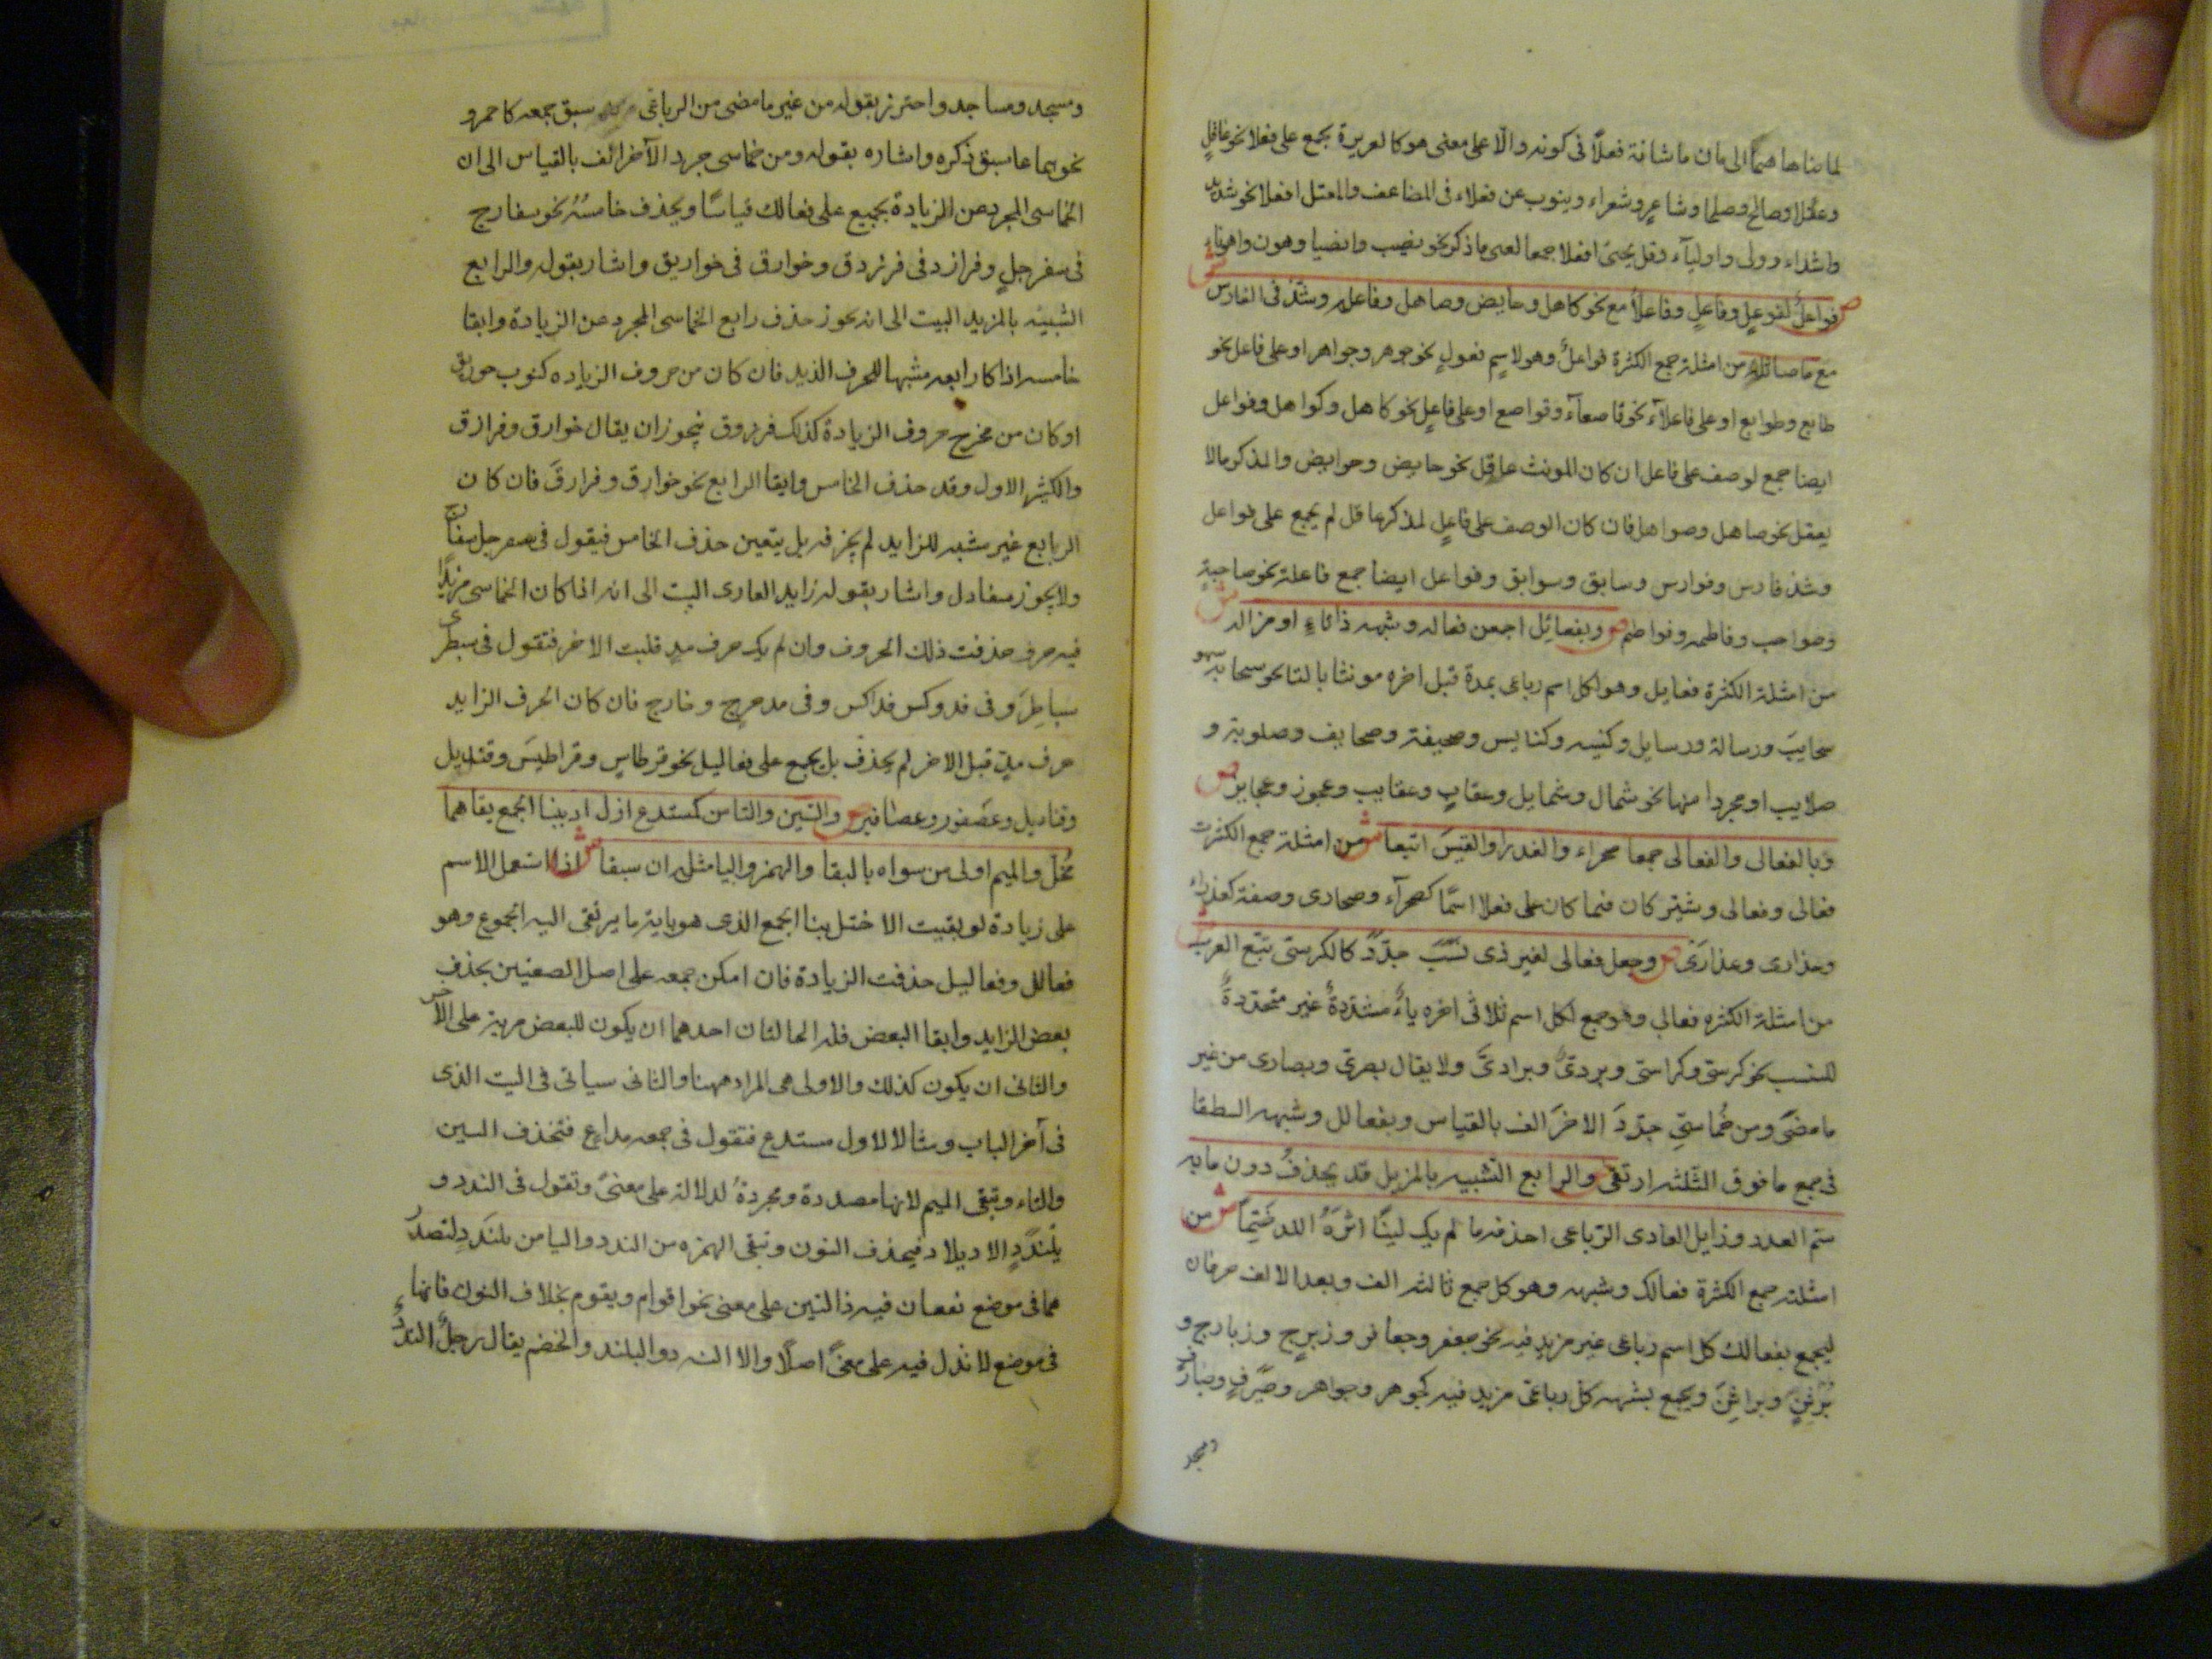 لما ضاهاهما الى مان ما شابه فعلاً فى كونه دالّا على معنى هو كالغريزة يجمع على فعلا نحو عاقلٍ
وعقلا وصالح وصلحا وشاعرٍ وشعراء وينوب عن فعلاء فى المضاعف والمعتل افعلا نحو شديد
واشداء وولى واوليآء وقل يجئ افعلا جمعا لغير ما ذكر نحو نصيب وانصبا وهون واهوناء
ص فواعلُ لفوعلٍ وفاعلٍ وفاعلاً مع نحو كاهل وحايض وصاهل وفاعله وشذّ فى الفارس ش
مع ما ماثله من امثلة جمع الكثرة فواعلُ وهو لاسم فوعلٍ نحو جوهر وجواهر او على فاعل نحو
طابع وطوابع او على فاعلآء نحو قاصعآء وقواصع او على فاعلٍ نحو كاهل وكواهل وفواعل
ايضا جمع لوصف على فاعل ان كان المونث عاقل نحو حايض وحوايض والمذكر مالا
يعقل نحو صاهل وصواهل فان كان الوصف على فاعلٍ لمذكر عاقل لم يجمع على فواعل
وشذ فارس وفوارس وسابق وسوابق وفواعل ايضا جمع فاعلة نحو صاحبةٍ
وصواحب وفاطمه وفواطم ص وبفعائل اجمعن فعاله وشبهه ذا تاءٍ او مزاله ش
من امثلة الكثرة فعايل وهو لكل اسم رباعى بمدة قبل اخره مونثا بالتا نحو سحابة
سحايبَ ورسالة ورسايل وكنيسه وكنايس وصحيفة وصحايف وحلوبة و
حلايب او مجردا منها نحو شمال وشمايل وعقابٍ وعقايب وعجوز وعجايز ص
وبالفعالى والفعالى جمعا صحراء والعذرا والقيسَ اتبعا ش من امثلة جمع الكثرت
فعالى وفعالى ويشتركان فيما كان على فعلا اسمًا كصحرآء وصحارى وصفة كعذراء
وعذارى وعذارَى ص وجعل فعالى لغير ذى نسَب جدّدَ كالكرسىّ تتبع العرب ش
من امثلة الكثره فعالي وهو جمع لكل اسم ثلاثى اخره ياءٌ مشدّدةٌ غير متجدّدةً
للنسب نحو كرسىّ وكراسىّ وبردىّ وبرادىَّ ولا يقال بصرىّ وبصارى من غير
ما مضَى ومن خُماسىّ جرّدَ الاخرَ انف بالقياس وبفعالل وشبهه انطقا
فى جمع ما فوق الثلثه ارتقى والرابع الشبيه بالمزيل قد يحذف دون ما به
ستم العدد وزايل العادى الرّباعى احذفه ما لم يك لينًا اثرَهُ اللذ ختماً ش من
امثلة جمع الكثرة فعالل وشبهه وهو كل جمع ثالثه الف وبعد الالف حرفان
ليجمع بفعالل كل اسم رباعى غير مزيدٍ فيه نحو جعفر وجعافر وزبرج وزبارج و
بُرثنٍ وبراثن ويجمع بشبهه كل رباعى مزيد فيه كجوهر وجواهر وصيرفٍ وصيارف
ومسجد
ومسجد ومساجد واحترز بقوله من غير ما مضى من الرباعى سبق جمعه كاحمر و
نحوهما عما سبق ذكره واشاره بقوله ومن خماسى جرد الآخر انف بالقياس الى ان
الخماسى المجرد عن الزيادة يجمع على فعالل قياسًا ويحذف خامسُهُ نحو سفارج
فى سفرجلٍ وفرازد فى فرزدق وخوارق فى خواريق واشار بقوله والرابع
الشبيه بالمزيد البيت الى انه يجوز حذف رابع الخماسى المجرد عن الزيادة وابقا
خامسه اذا كان رابعه مشبها للحرف الذيد فان كان من حروف الزياده كنوب خورنق
او كان من مخرج حروف الزيادة كذلك فرزدق فيجوز ان يقال خوارق وفرازق
والكثير الاول وقد حذف الخامس وابقا الرابع نحو خوارق وفرازقَ فان كان
الرابع غير مشبه للزايد لم يجز فه بل يتعين حذف الخامس فيقول فى سفرجل سفارج
ولا يجوز سفادل واشار بقوله زايد العادى البيت الى انه اذا كان الخماسى مزيدًا
فيه حرف حذفت ذلك الحروف وان لم يك حرف مدٍ قلبت الاخر فتقول فى سبطرى
سباطِرَ وفى فدوكس فداكس وفى مدحرج دحارج فان كان الحرف الزايد
حرف مدٍ قبل الاخر لم يحذف بل يجمع على فعاليل نحو قرطاسٍ وقراطيسَ وقنديل
وقناديل وعصفور وعصافير ص والسّين والتا من كمستدع ازل اذ ببنا الجمع بقاهما
مُخل والميم اولى من سواه بالبقا والهمز واليا مثله ان سبقا ش اذا اشتمل الاسم
على زيادة لو بقيت لاختل بنا الجمع الذى هو نهاية ما يرتقى اليه الجموع وهو
فعالل وفعاليل حذفت الزيادة فان امكن جمعه على اصل الصفتين بحذف
بعض الزايد وابقا البعض فله الحالتان احدهما ان يكون للبعض مزية على الآخر
والثانى ان يكون كذلك والاولى هى المراد ههنا والثانى سياتى فى البيت الذى
فى آخر الباب ومثال الاول مستدع فتقول فى جمعه مداعٍ فتحذف السين
والتاء وتبقى الميم لانها مصددة ومجردةُ للدلالة على معنىً وتقول فى الندد و
يلنددٍ الاد ويلاد فيحذف النون وتبقى الهمزه من الندد واليا من يلندد لتصدر
هما فى موضع تقعان فيه ذالتين على معنى نحو اقوام ويقوم بخلاف النون فانها
فى موضع لا تدل فيه على معنىً اصلاً والالندد واليلندد الخصم يقال رجلٌ الندد